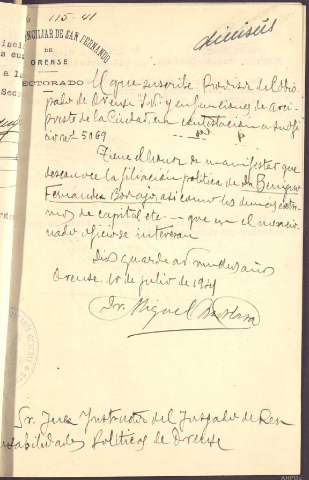 115-41
dieciseis
CONCILIAR DE SAN FERNANDO
DE
ORENSE
RECTORADO
El que suscribe Provisor del Obis
pado de Orense S.V. y en funciones de arci
preste de la Ciudad en contestación a su ofi
cio nº 5069
Tiene el honor de manifestar que
desconoce la filiación política de Dn Benigno
Fernández Borrajo, así como los demás extre
mos de capital etc. — que en el mencio
nado oficio se interesan
Dios guarde a V. muchos años
Orense 10 de julio de 1941
Dr. Miguel
Sr. Juez Instructor del Juzgado de Res
ponsabilidades Políticas de Orense